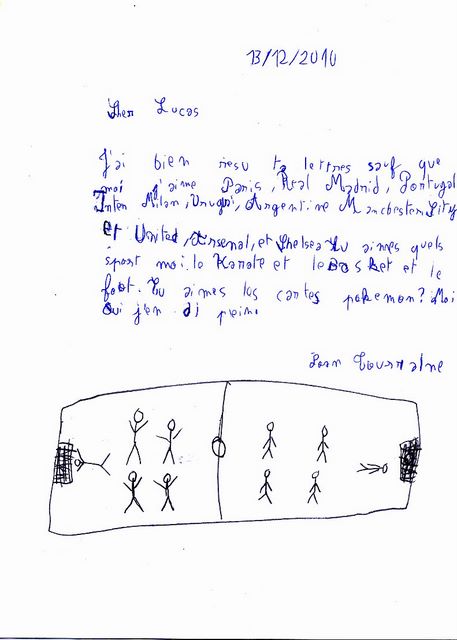 13/12/2010
Cher Lucas
J'ai bien resu ta lettres sauf que
moi j'aime Paris, Real Madrid, Portugal
Inten Milan, Urugri, Argentine Manchesten City
et United, Arsenal, et Chelsea tu aimes quels
sport moi. lo Karate et le Bas ket et le
foot. Tu aimes les cartes pokemon? Moi
oui j'en di pleinc